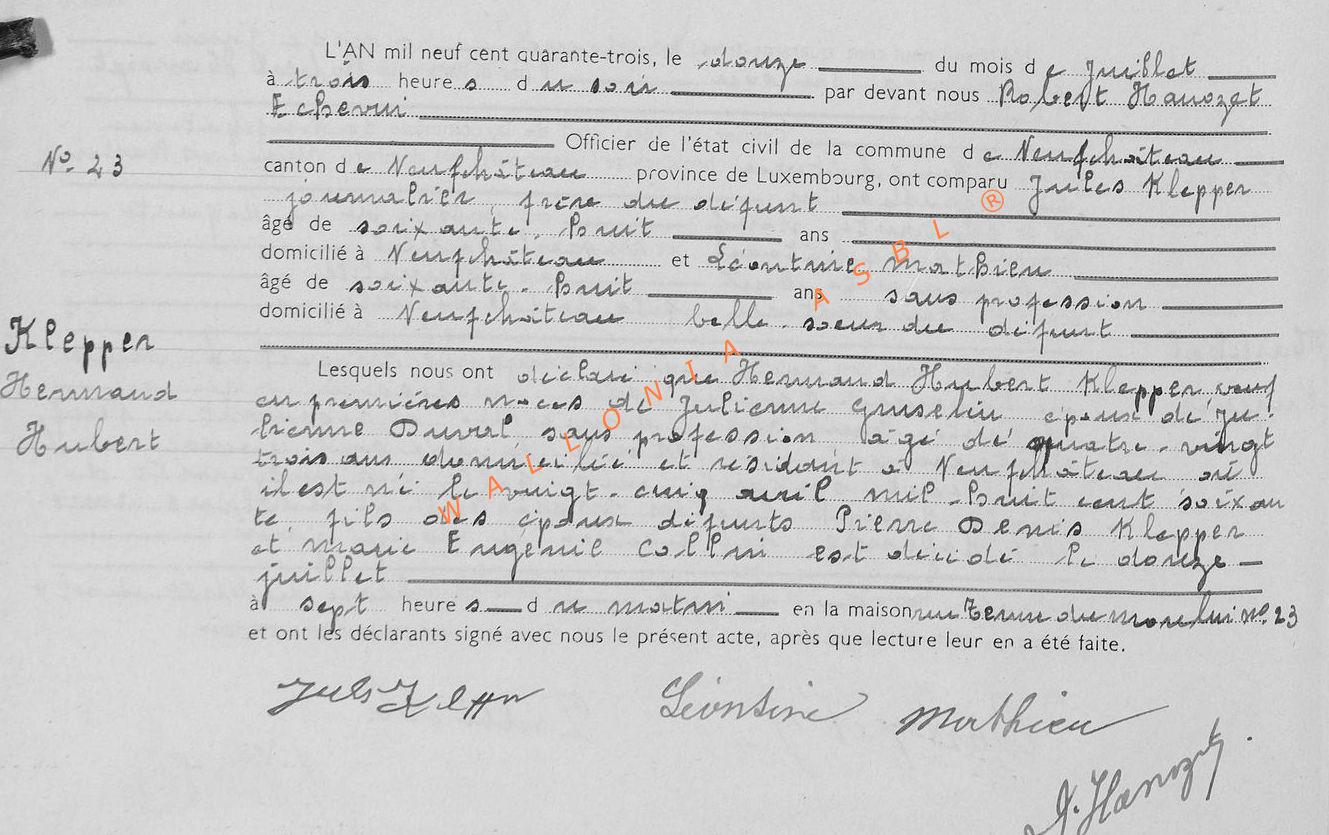 L'AN mil neuf cent quarante-trois, le douze du mois de Juillet
à trois heures du soir par devant nous Robert Hanozet
Echevin
Officier de l'état civil de la commune de Neufchâteau
N° 23
canton de Neufchâteau province de Luxembourg, ont comparu Jules Klepper
journalier, frère du défunt
âgé de soixante. huit ans
domicilié à Neufchâteau et Léontine Mathieu
âgé de soixante. huit ans sans profession
domicilié à Neufchâteau belle. soeur du défunt
Klepper
Hernand
Hubert
Lesquels nous ont déclaré que Hernand Hubert Klepper, veuf
en premières noces de Julienne Guselin époux de Ju
lienne Duval, sans profession âgé de quatre. vingt
trois ans domicilié et résidant à Neufchâteau où
il est né le vingt. cinq avril mil-huit cent soixan
te, fils des époux défunts Pierre Denis Klepper
et Marie Eugénie Collin est décédé le douze
juillet
à sept heures du matin en la maison rue du moulin N° 23
et ont les déclarants signé avec nous le présent acte, après que lecture leur en a été faite.
Jules Klepper Léontine Mathieu
R. Hanozet
WALLONIA ASBL ®